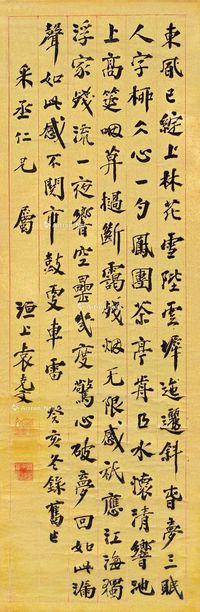 東風已綻上林花雪陛雲墀迤邐斜春夢三眠
人字柳久心一勺鳳團茶亭皆乃水懷清響池
上高筵咽草撾斷靄殘烟无限感祇應江海獨
浮家殘流一夜響空靈幾度驚心破夢回如此漏
聲如此感不関市鼓更車雷 癸亥冬錄舊作
采丞仁兄屬 洹上袁克文